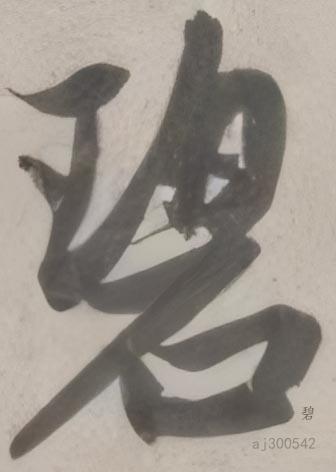 碧
碧
aj300542